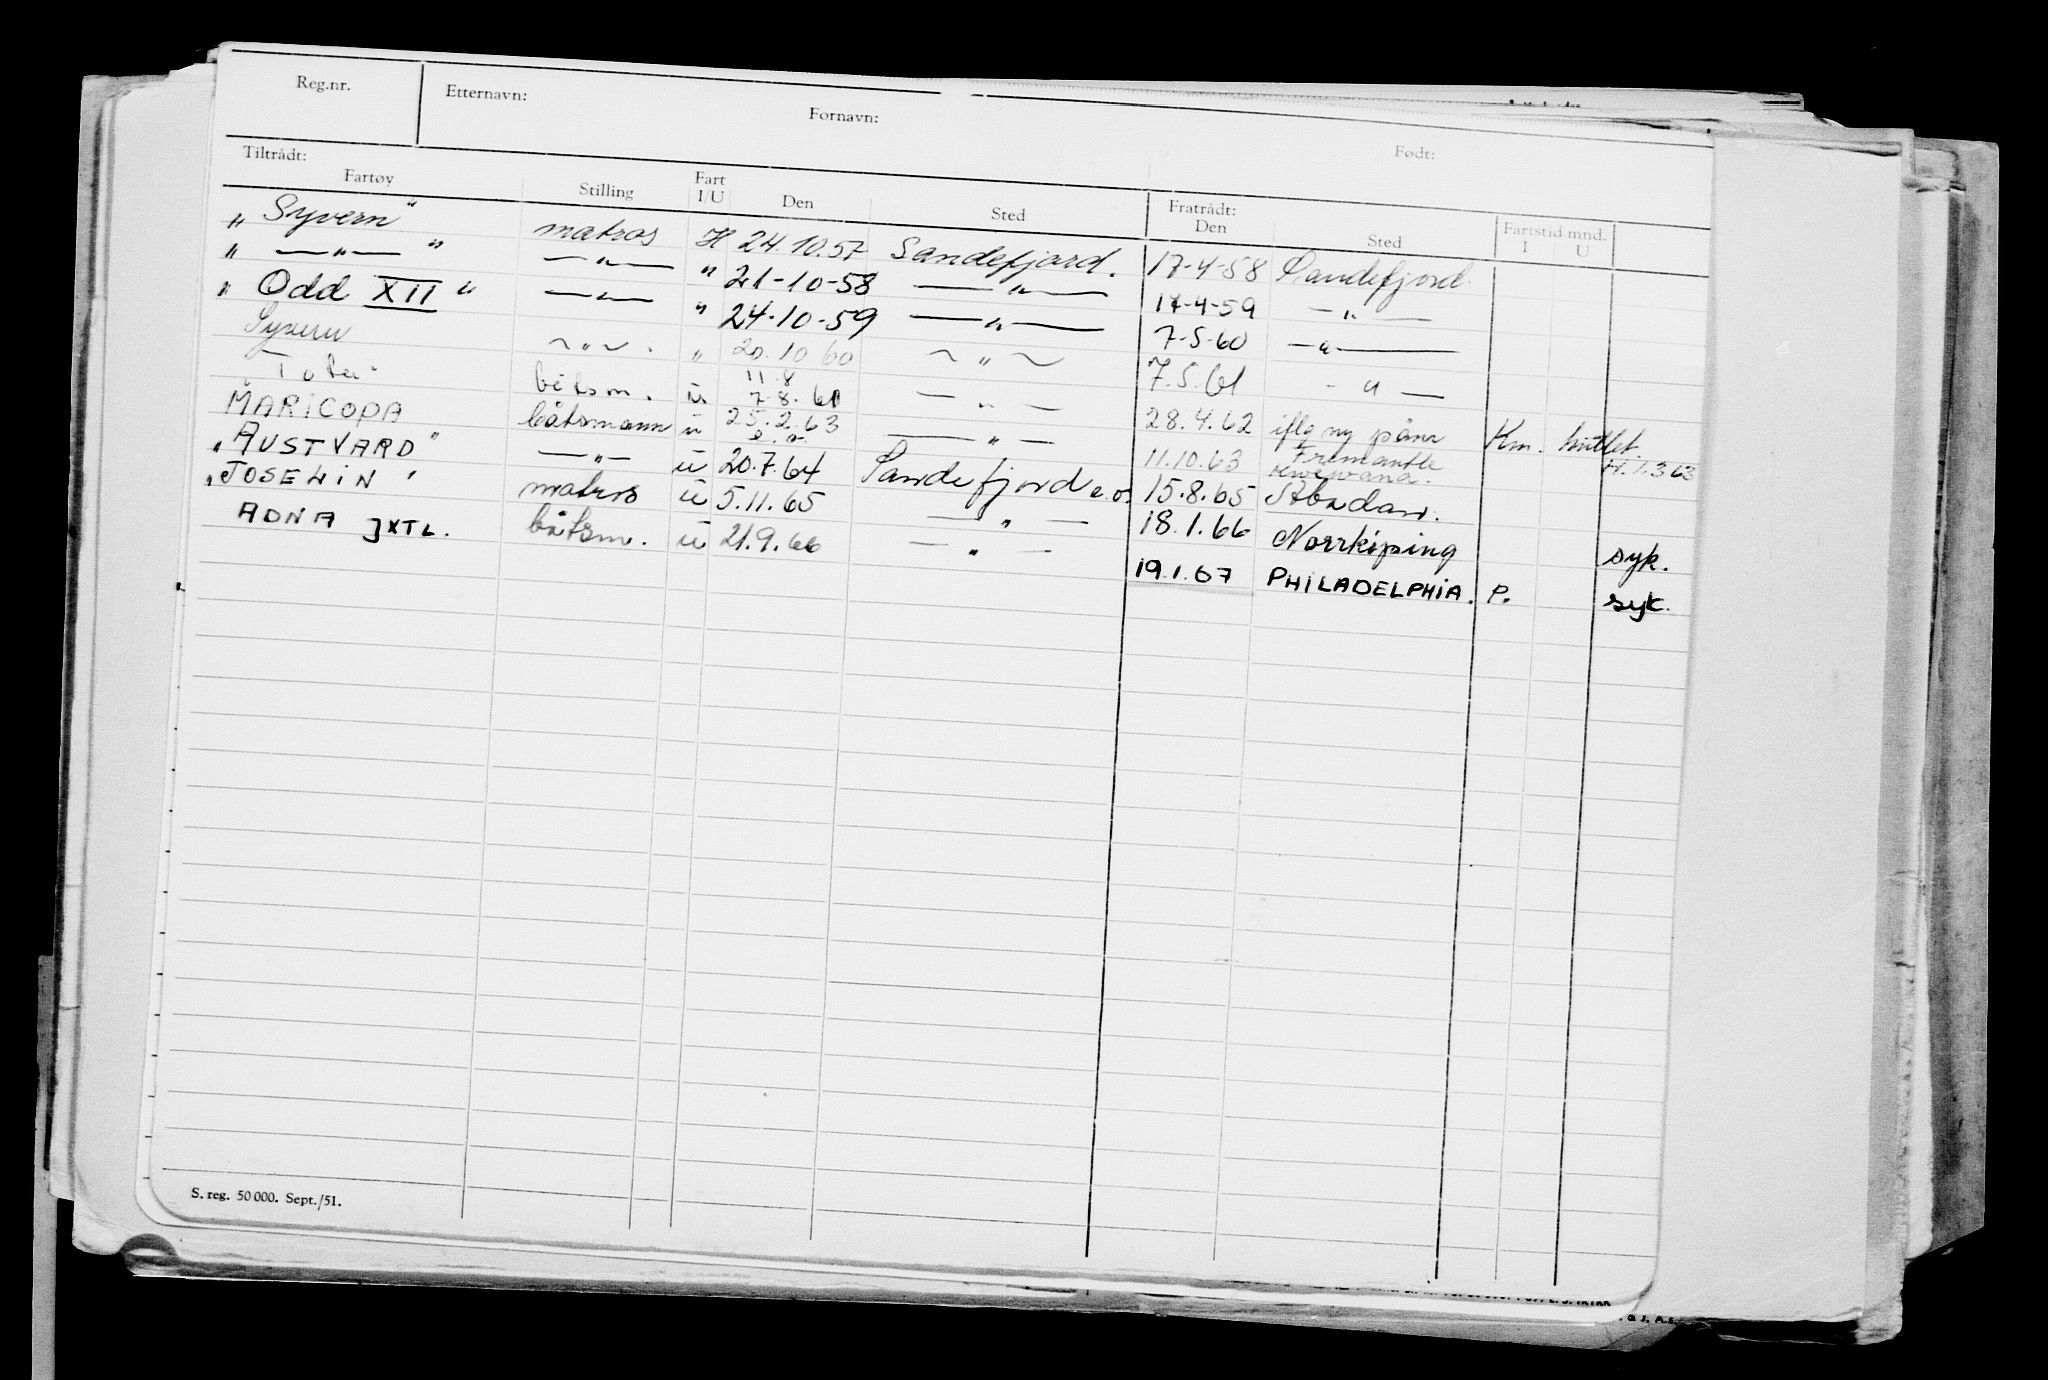 Reg.nr. Etternavn: Fornavn: Født:
Tiltrådt: Fratrådt:
Fartøy Stilling Fart I/U Den Sted Den Sted Fartstid mnd. I U
„ Syvern " matros H 24.10.57 Sandefjord. 17-4-58 Sandefjord.
„ —„— " —„— " 21-10-58 —„— 17-4-59 —„—
„ Odd XII " —„— " 24-10-59 —„— 7-5-60 —„—
Syvern ~„~. " 20.10 60 ~„~ 7.5.61 -„—
båtsm. u 11.8 7.8.61 —„— 28.4.62 iflg ny Km.
MARICOPA båtsmann u 25.2.63 —„— 11.10.63 Fremantle
„AUSTVARD" —„— u 20.7.64 Sandefjord e.o. 15.8.65 Abadan.
„JOSELIN ' matros u 5.11.65 —„— 18.1.66 Norrköping syk.
ADNA JXTL. båtsm. u 21.9.66 —„— 19.1.67 PHILADELPHIA. P. syk.
S. reg. 50 000. Sept./51.